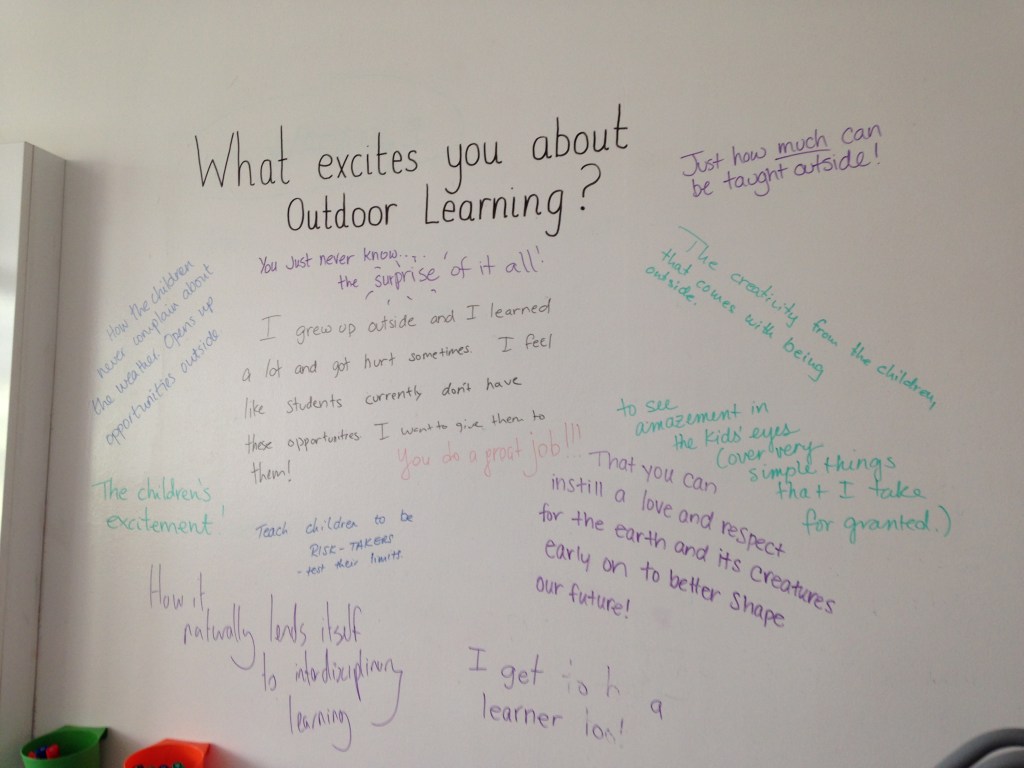 What excites you about
Outdoor Learning?
Just how much can
be taught outside!
You just never know....
the surprise of it all!
How the children
never complain about
the weather. Opens up
opportunities outside.
I grew up outside and I learned
a lot and got hurt sometimes. I feel
like students currently don't have
these opportunities. I want to give them to
them!
The creativity from the children,
that comes with being
outside.
You do a great job!!!
to see
amazement in
the kids' eyes
(over very
simple things
that I take
for granted.)
The children's
excitement!
Teach children to be
RISK-TAKERS
- test their limits.
That you can
instill a love and respect
for the earth and its creatures
early on to better shape
our future!
How it
naturally lends itself
to interdisciplinary
learning
I get a
learner